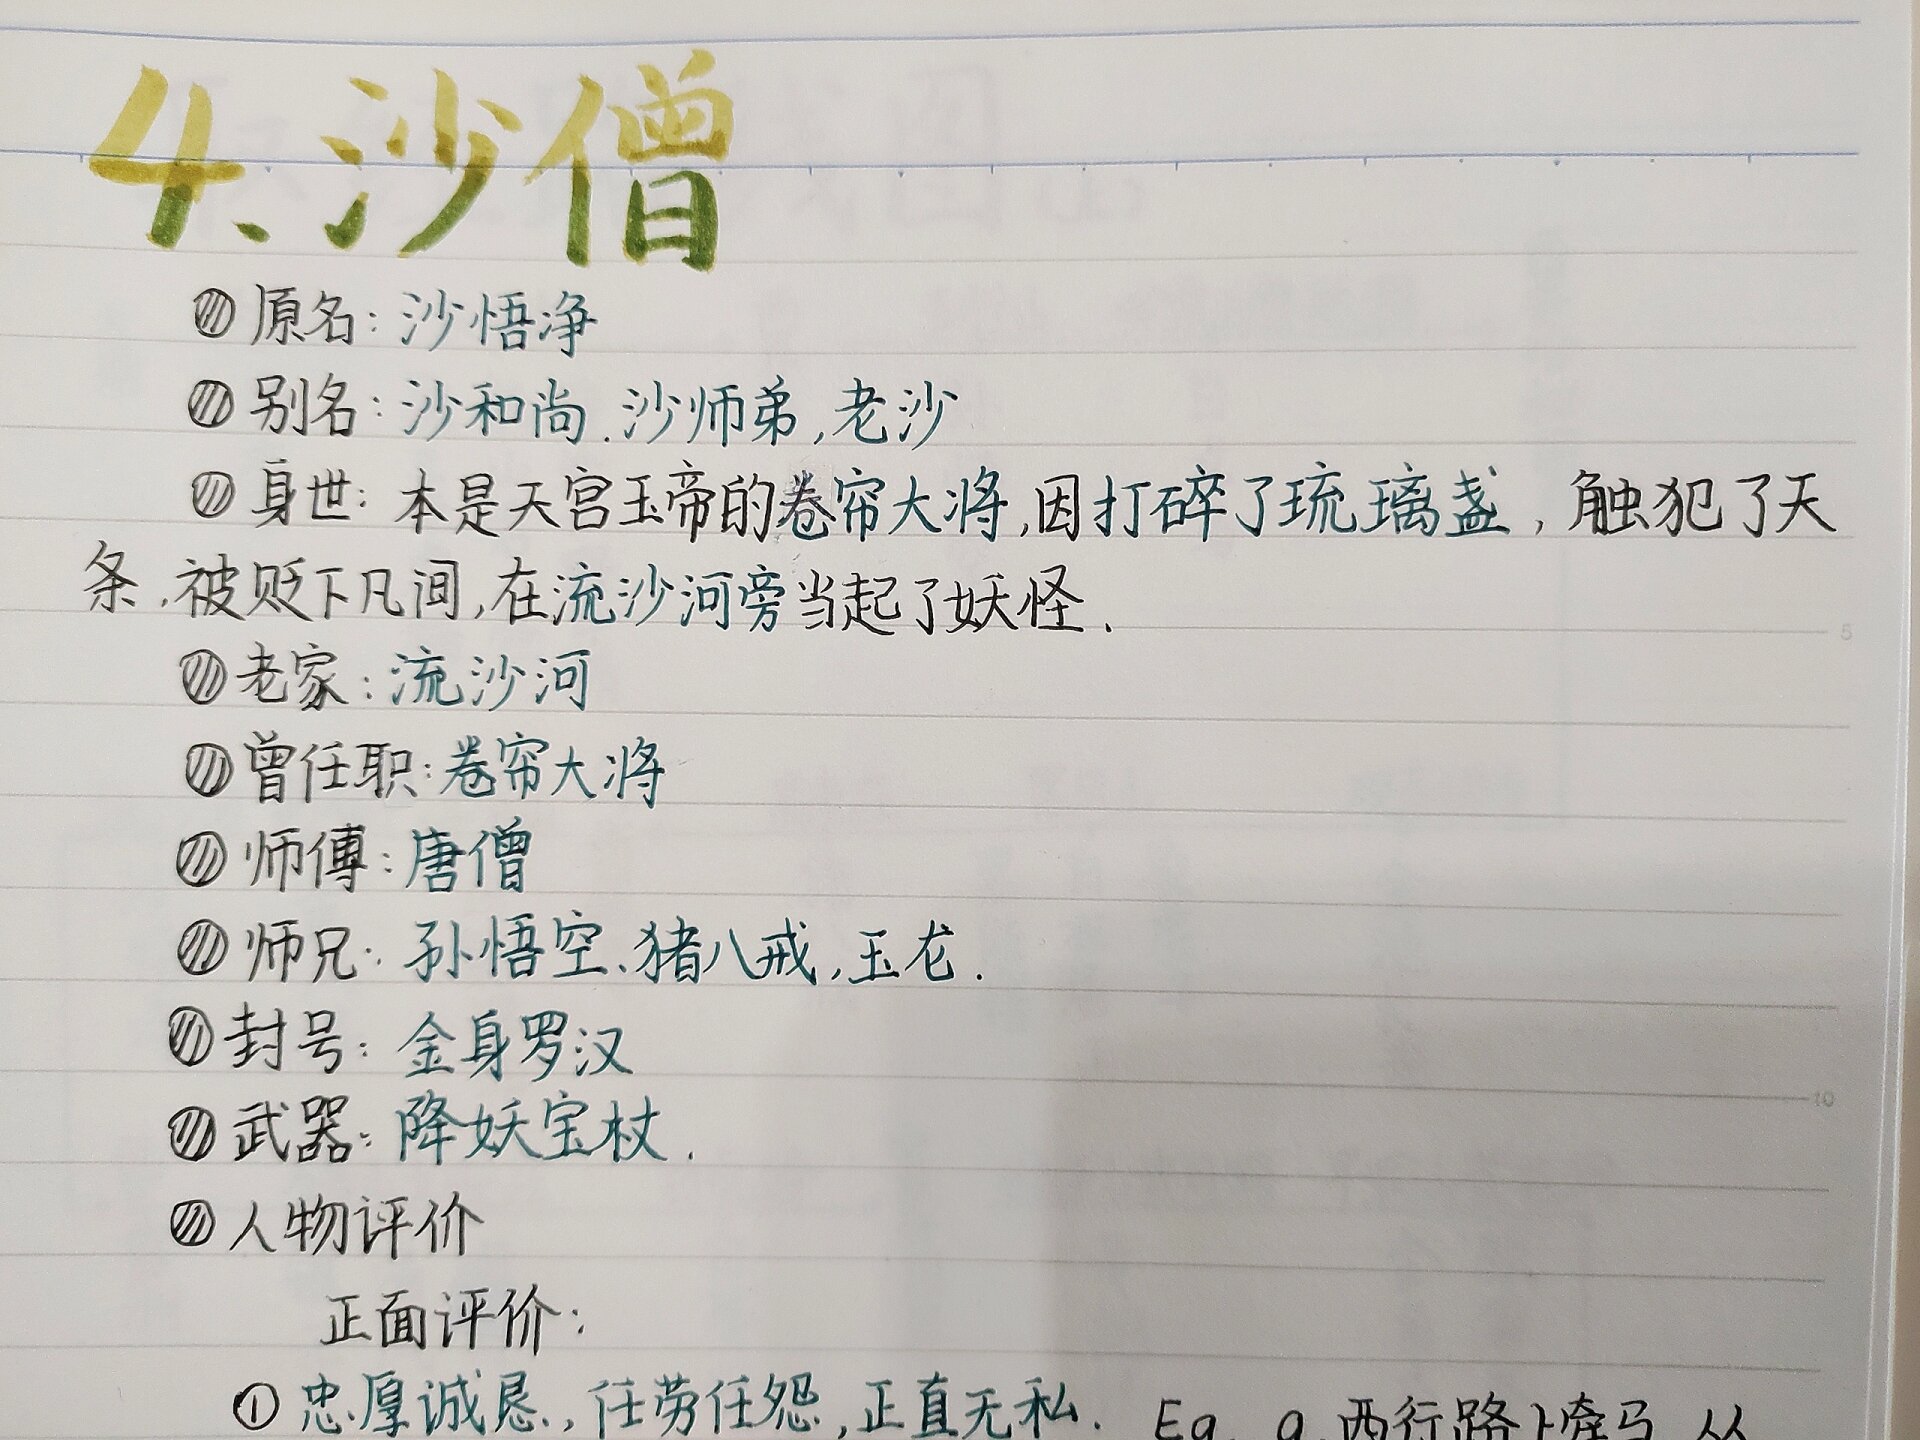 4、沙僧
原名：沙悟净
别名：沙和尚.沙师弟,老沙
身世：本是天宫玉帝的卷帘大将,因打碎了琉璃盏,触犯了天
条.被贬下凡间,在流沙河旁当起了妖怪.
5
老家：流沙河
曾任职：卷帘大将
师傅：唐僧
师兄：孙悟空、猪八戒,玉龙.
封号：金身罗汉
10
武器：降妖宝杖.
人物评价
正面评价：
① 忠厚诚恳,任劳任怨,正直无私. Eg. a.西行路上牵马